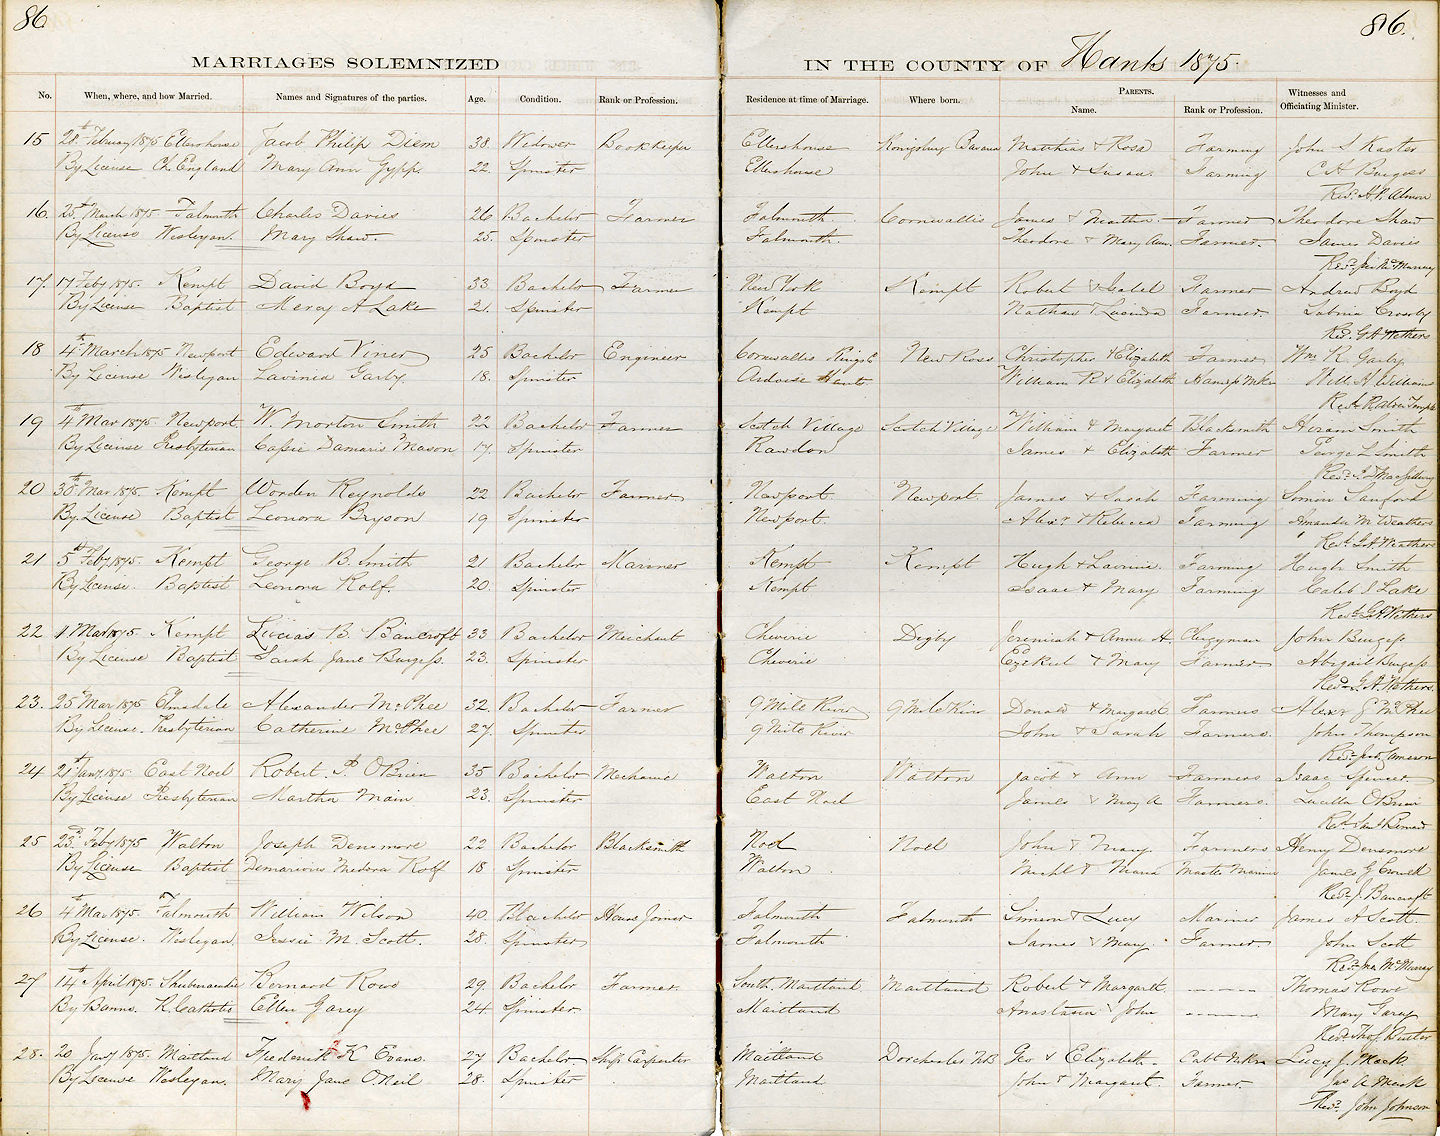 86
86.
MARRIAGES SOLEMNIZED IN THE COUNTY OF Hants 1875.
No. When, where, and how Married. Names and Signatures of the parties. Age. Condition. Rank or Profession. Residence at time of Marriage. Where born. PARENTS. Name. Rank or Profession. Witnesses and Officiating Minister.
15 28th February 1875 Ellershouse Jacob Philip Diem 38 Widower Bookkeeper Ellershouse Bavaria Matthias & Rosa Farming John S Kaster
By License Ch. England Mary Ann 22. Spinster Ellershouse John & Susan Farming C A Burgess
Revd. H. P. Almon
16. 25th March 1875 Falmouth Charles Davies 26 Bachelor Farmer Falmouth. Cornwallis James & Martha Farmer Theodore Shaw
By License Wesleyan. Mary Shaw. 25. Spinster Falmouth. Theodore & Mary Ann. Farmer. James Davies
Revd. Jno McMurray
17. 17 Feby 1875. Kempt David Boyd 33 Bachelor Farmer New York Kempt Robert & Isabel Farmer Andrew Boyd
By License Baptist Mercy A Lake 21. Spinster Kempt Nathan & Lucinda Farmer. Crosby
Revd. G A Wethers
18 4th March 1875 Newport Edward Viner 25 Bachelor Engineer Cornwallis Kings Co New Ross Christopher & Elizabeth Farmer Wm K. Garby
By License Wesleyan Lavinia Garby 18. Spinster Ardoise Hants William R & Elizabeth Willm H Williams
Revd.
19 4th Mar 1875. Newport W. Morton Smith 22 Bachelor Farmer Scotch Village Scotch Village William & Margaret Blacksmith Hiram Smith
By License Presbyterian Cassie Damaris Mason 17. Spinster Rawdon James & Elizabeth Farmer George L Smith
Revd.
20 30th Mar 1875. Kempt Worden Reynolds 22 Bachelor Farmer Newport Newport. James & Sarah Farming Simon Sanford
By License Baptist Leonora Bryson 19 Spinster Newport. Alexr & Rebecca Farming Amanda M Weathers
Revd. G A Weathers
21 5th Feby 1875. Kempt George B. Smith 21 Bachelor Mariner Kempt Kempt Hugh & Lavinia Farming Hugh Smith
By License. Baptist Leonora Rolf. 20. Spinster Kempt Isaac & Mary Farming Caleb J Lake
Revd. G A Wethers
22 11 Mar 1875. Kempt Lucias B. Bancroft 33 Bachelor Merchant Cheverie Digby Jeremiah & Annie H. Clergyman John Burgess
By License Baptist Sarah Jane Burgess. 23. Spinster Cheverie Ezekiel & Mary Farmer. Abigail Burgess
Revd. G. A. Wethers.
23. 25 Mar 1875 Elmsdale Alexander McPhee 32. Bachelor Farmer 9 Mile River 9 Mile River Donald & Margaret Farmers Alexr G McPhee
By License. Presbyterian Catherine McPhee 27. Spinster 9 Mile River John & Sarah Farmers. John Thompson
Revd. Jno. Cameron
24 21st Jany 1875. East Noel Robert P. OBrien 35 Bachelor Mechanic Walton Walton Jacob & Ann Farmers Isaac Spencer
By License Presbyterian Martha Main 23. Spinster East Noel James & May A Farmers. Lucilla OBrien
Revd.
25 23d. Feby 1875 Walton Joseph Densmore 22 Bachelor Blacksmith Noel Noel John & Mary. Farmers Henry Densmore
By License Baptist Demarious Medora Rolf 18 Spinster Walton Michl & Maria Master Mariner James G Crowell
Revd. J. Bancroft
26 4th Mar 1875. Falmouth William Wilson 40. Bachelor House Joiner Falmouth Falmouth Simon & Lucy Mariner James A Scott.
By License. Wesleyan. Jessie M. Scott. 28. Spinster Falmouth James & Mary. Farmer John Scott
Revd. Jno McMurray
27 14th April 1875. Shubenacadie Bernard Rowe 29. Bachelor Farmer. South Maitland. Maitland Robert & Margaret. ------ Thomas Rowe
By Banns. R. Catholic Ellen Garey 24 Spinster. Maitland Anastasia & John ------ Mary Garey
Revd. Thos. Butler
28. 20 Jany 1875. Maitland Frederick K Evans. 27 Bachelor Ship Carpenter Maitland Dorchester NB Geo & Elizabeth. Cabt Maker Lucy J. Mack.
By License Wesleyan. Mary Jane ONeil 28. Spinster Maitland. John & Margaret. Farmer. Jas A Mack
Revd. John Johnson